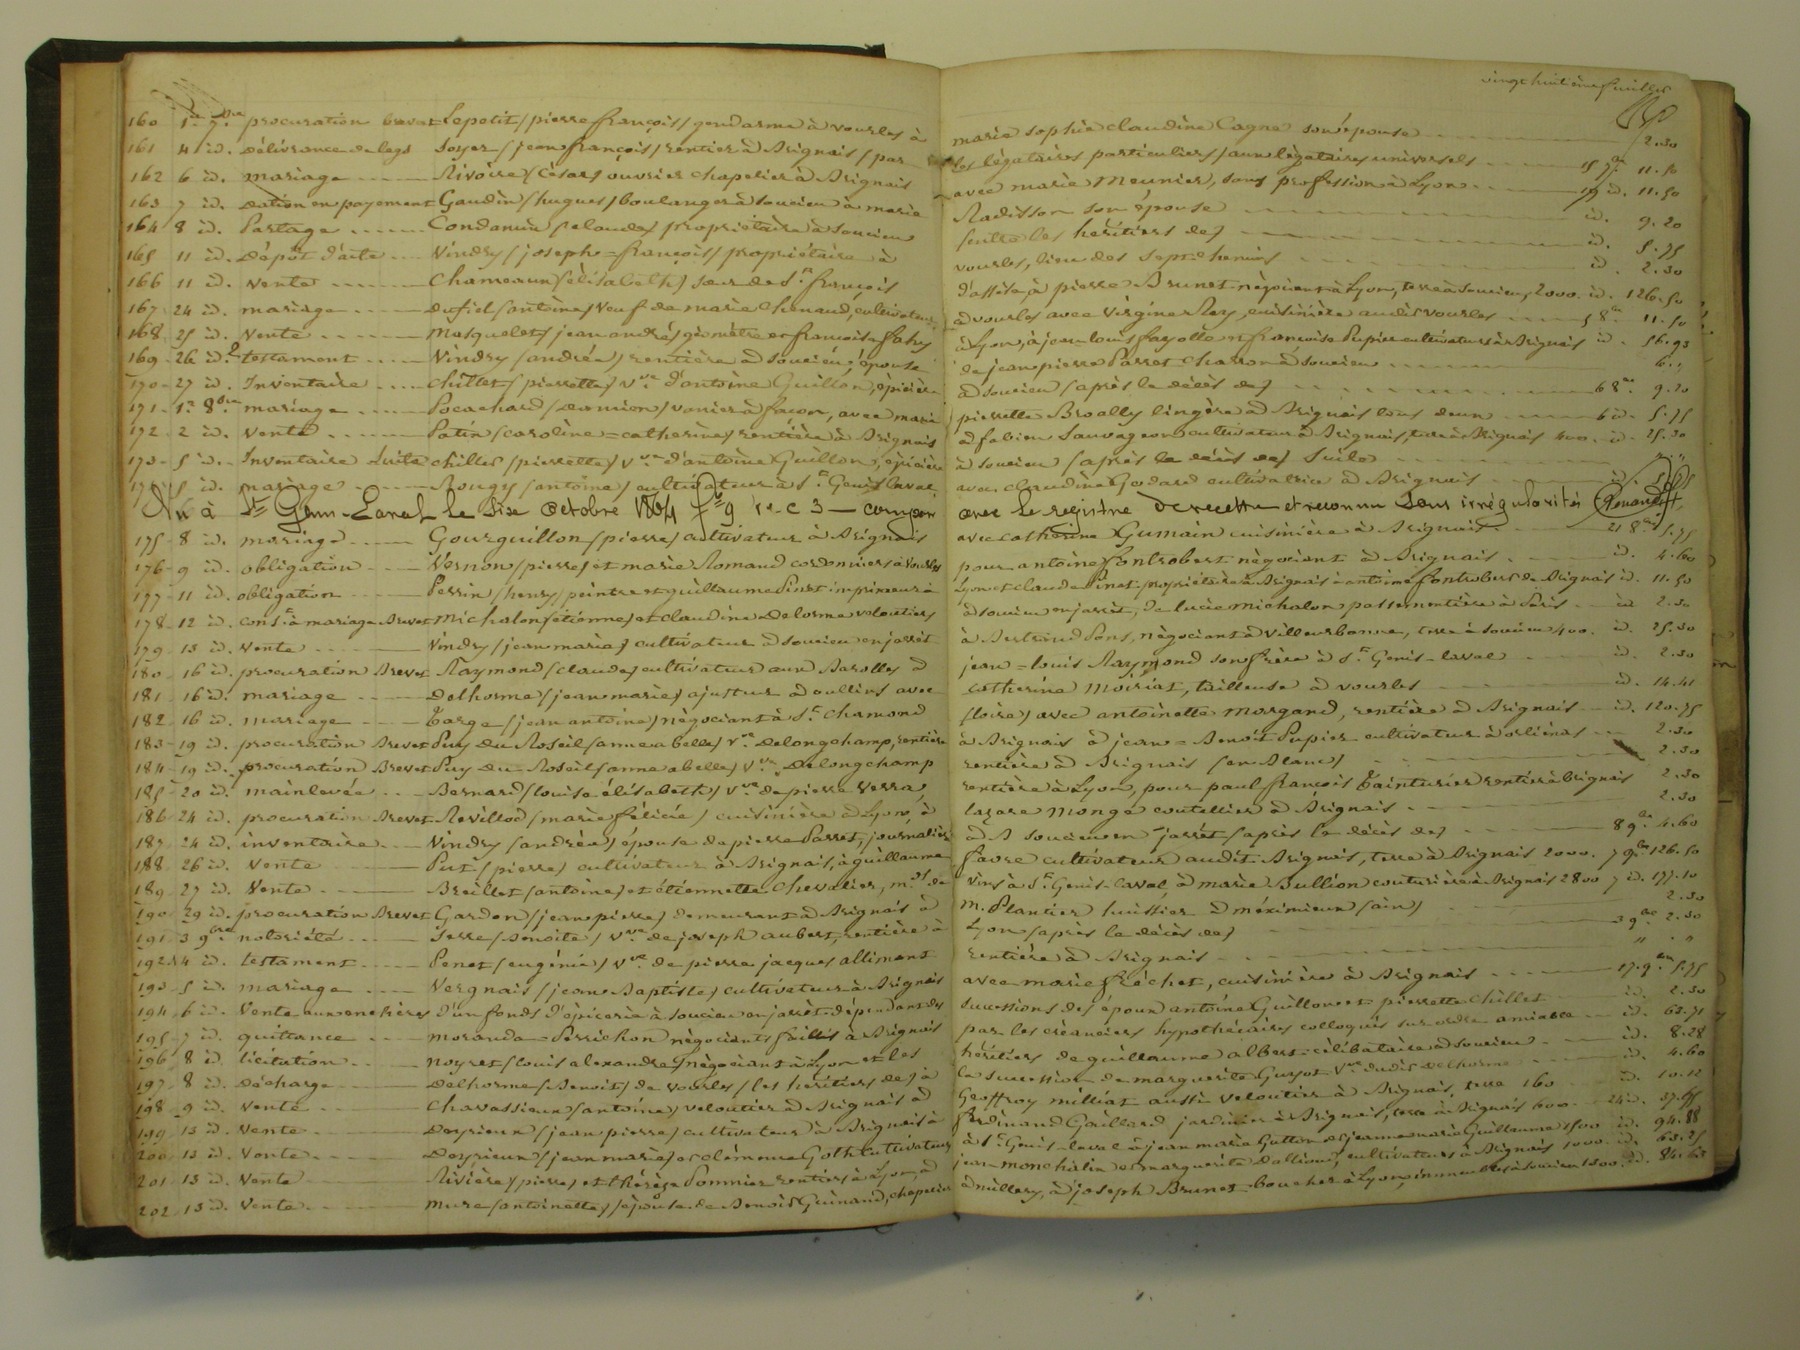 vingt huitième feuillet
160 1er 7bre procuration brevet Lepetit (pierre françois) gendarme à vourles à marie sophie claudine Cagne son épouse 2.30
161 4 id. Délivrance de legs Soyer (jean françois) rentier à Brignais (par les légataires particuliers) aux légataires universels 15 7bre 11.50
162 6 id. mariage Rivoire (César) ouvrier chapelier à Brignais avec marie Meunier, sans profession à Lyon id. 11.50
163 7 id. Dation en payement Gaudin (hugues) boulanger à soucieu à marie Radisson son épouse id. 9.20
164 8 id. Partage Condamin (claude) propriétaire à soucieu (entre les héritiers de) id. 5.75
165 11 id. Dépôt d'acte Vindry (joseph=françois) propriétaire à vourles, lieu des sept chemins id. 2.30
166 11 id. vente Chameaux (élisabeth) sœur de St françois d'assise, à pierre Brunet négociant à Lyon, terre à soucieu, 2000. id. 126.50
167 24 id. mariage (antoine) veuf de marie Chenaud, cultivateur à vourles avec Virginie Rey, cuisinière audit vourles 5 8bre 11.50
168 25 id. Vente Mosquelet (jean andré) géomètre et françoise Fahy à Lyon, à jean louis fayolle et françoise Pupier cultivateurs à Brignais id. 56.93
169 26 id. testament Vindry (andréa) rentière à soucieu, épouse de jean pierre Parret charron à soucieu
170 27 id. Inventaire Chillet (pierrette) Vve d'antoine Guillon, épicière à soucieu (après le décès de) 6 8bre 9.20
171 1er 8bre mariage Pocachard (Damien) vernier à façon, avec marie pierrette Broally lingère à Brignais tous deux 6 id. 5.75
172 2 id. Vente Patin (caroline=catherine) rentière à Brignais à fabien Sauvageon cultivateur à Brignais, terre à Brignais 400. id. 25.30
173 5 id. Inventaire suite chillet (pierrette) Vve d'antoine Guillon, épicière à soucieu (après le décès de) Suite " "
174 5 id. mariage Rougy (antoine) cultivateur à St Genis laval, avec claudine Godard cultivatrice à Brignais id. 5.75
Vu à St Genis-Laval le six octobre 1864 fo 9 ro c 3 — comparé avec le registre de recette et reconnu sans irrégularités
175 8 id. mariage Gourguillon (pierre) cultivateur à Brignais avec catherine Gumain cuisinière à Brignais 21 8bre 5.75
176 9 id. obligation Vernon (pierre) et marie Romand cordonniers à Vourles pour antoine fontrobert négociant à Brignais id. 4.60
177 11 id. obligation Perrin (henry) peintre et guillaume Pinet imprimeur à Lyon et claude Pinet propriétaire à Brignais à antoine fontrobert de Brignais id. 11.50
178 12 id. const à mariage Brevet Michalon (étienne) et claudine Delorme veloutiers à soucieu en jarrêt, de lucie michalon passementière à Paris id 2.30
179 13 id. vente Vindry (jean marie) cultivateur à soucieu en jarrêt à Bertrand Pons, négociant à villeurbanne, terre à soucieu 400. id. 25.30
180 16 id. procuration Brevet Raymond (claude) cultivateur aux Barolles à jean=louis Raymond son frère à St Genis-laval id. 2.30
181 16 id. mariage Delhorme (jean marie) ajusteur à oullins avec catherine Moiriat, tailleuse à vourles id. 14.41
182 16 id. mariage Farge (jean antoine) négociant à St Chamond (loire) avec antoinette Morgand, rentière à Brignais id. 120.75
183 19 id. procuration Brevet Puy Du Roseil (anne abelle) Vve Delongchamp, rentière à Brignais à jean=Benoît Pupier cultivateur à orliénas 2.30
184 19 id. procuration Brevet Puy Du Roseil (anne abelle) Vve Delongchamp rentière à Brignais (en Blanc) 2.30
185 20 id. mainlevée Bernard (louise élisabeth) Vve de pierre Verra, rentière à Lyon, pour paul françois Tainturier rentier à Brignais 2.30
186 24 id. procuration Brevet Revillod (marie félicie) cuisinière à Lyon, à lazare Monge coutellier à Brignais 2.30
187 24 id. inventaire Vindry (andréa) épouse de pierre Parret, journalier à soucieu en jarrêt (après le décès de) 8 9bre 4.60
188 26 id. Vente Put (pierre) cultivateur à Brignais, à guillaume favre cultivateur audit Brignais, terre à Brignais 2000. 7 9bre 126.50
189 27 id. Vente Breillet (antoine) et étiennette Chevalier, mds de vins à St Genis-laval à marie Bullion couturière à Brignais 2800 7 id. 177.10
190 29 id. procuration Brevet Gardon (jean pierre) demeurant à Brignais à M. Plantier huissier à méximieux (ain) 2.30
191 3 9bre notoriété Serre (Benoite) Vve de joseph aubert, rentière à Lyon (après le décès de) 3 9bre 2.30
192 4 id. testament Penet (eugénie) Vve de pierre jacques alliment rentière à Brignais " "
193 5 id. mariage Vergnais (jean Baptiste) cultivateur à Brignais avec marie fréchet, cuisinière à Brignais 17 9bre 5.75
194 6 id. Vente aux enchères d'un fonds d'épicerie à soucieu en jarrêt dépendant des successions des époux antoine Guillon et pierrette Chillet id. 2.30
195 7 id. quittance Moranda=Perrichon négociants faillis à Brignais par les créanciers hypothécaires colloqués sur ordre amiable id. 63.71
196 8 id. licitation Noyret (louis alexandre) négociant à Lyon et les héritiers de guillaume albert célibataire à soucieu id. 8.28
197 8 id. Décharge Delhorme (Benoit) de vourles (les héritiers de) à la succession de marguerite Guyot Vve dudit Delhorme id. 4.60
198 9 id. Vente Chavassieux (antoine) veloutier à Brignais à Geoffroy milliat aussi veloutier à Brignais, terre 160 id. 10.12
199 13 id. Vente Doyrieux (jean pierre) cultivateur à Brignais à ferdinand Gaillard jardinier à Brignais, terre à Brignais 600. 24 id. 37.95
200 13 id. Vente Doyrieux (jean marie) et clémence Goth cultivateurs à St Genis-laval à jean marie Gutton et jeanne marie Guillaume 1500 id. 94.88
201 13 id. Vente Rivière (pierre) et thérèse Pommier rentiers à Lyon, à jean monchalin et marguerite Dallion, cultivateurs à Brignais 1000. id. 63.25
202 13 id. Vente Mure (antoinette) épouse de Benoît Guinand, chapelier à millery, à joseph Brunet boucher à Lyon, immeubles à soucieu 1300. id. 84.